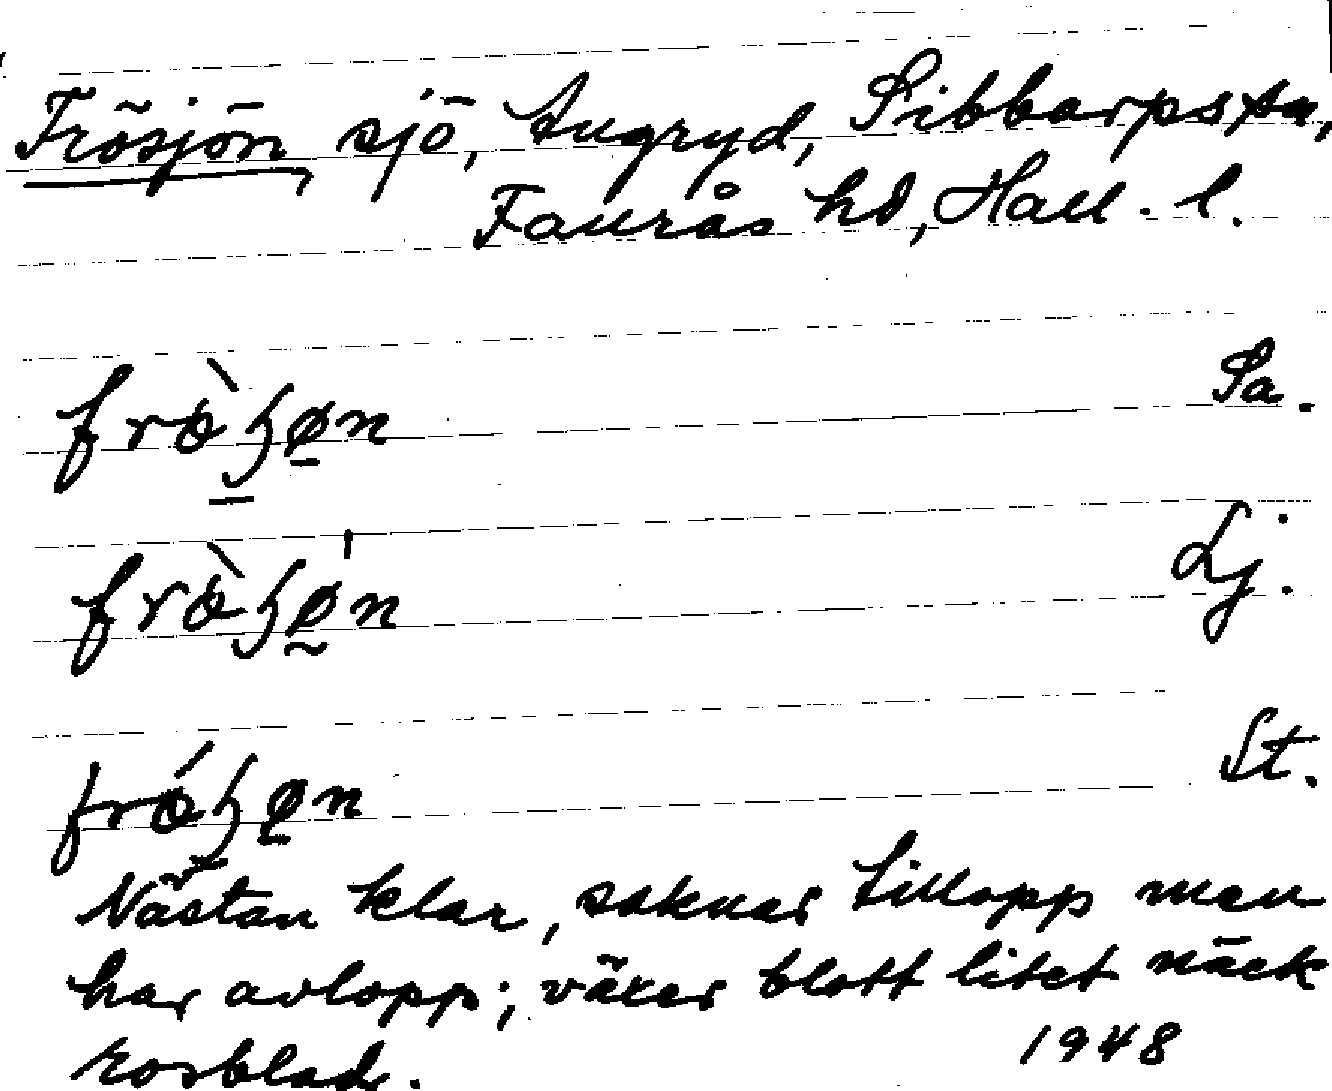 Frösjön, sjö, Tugryd, Sibbarps sn,
Faurås hd, Hall. l.
frò̱ȥø̱n Sa.
fròȥø̰n Lj.
fróȥø̱n St.
Nästan klar, saknar tillopp men
har avlopp; växer blott litet näck
rosblad. 1948